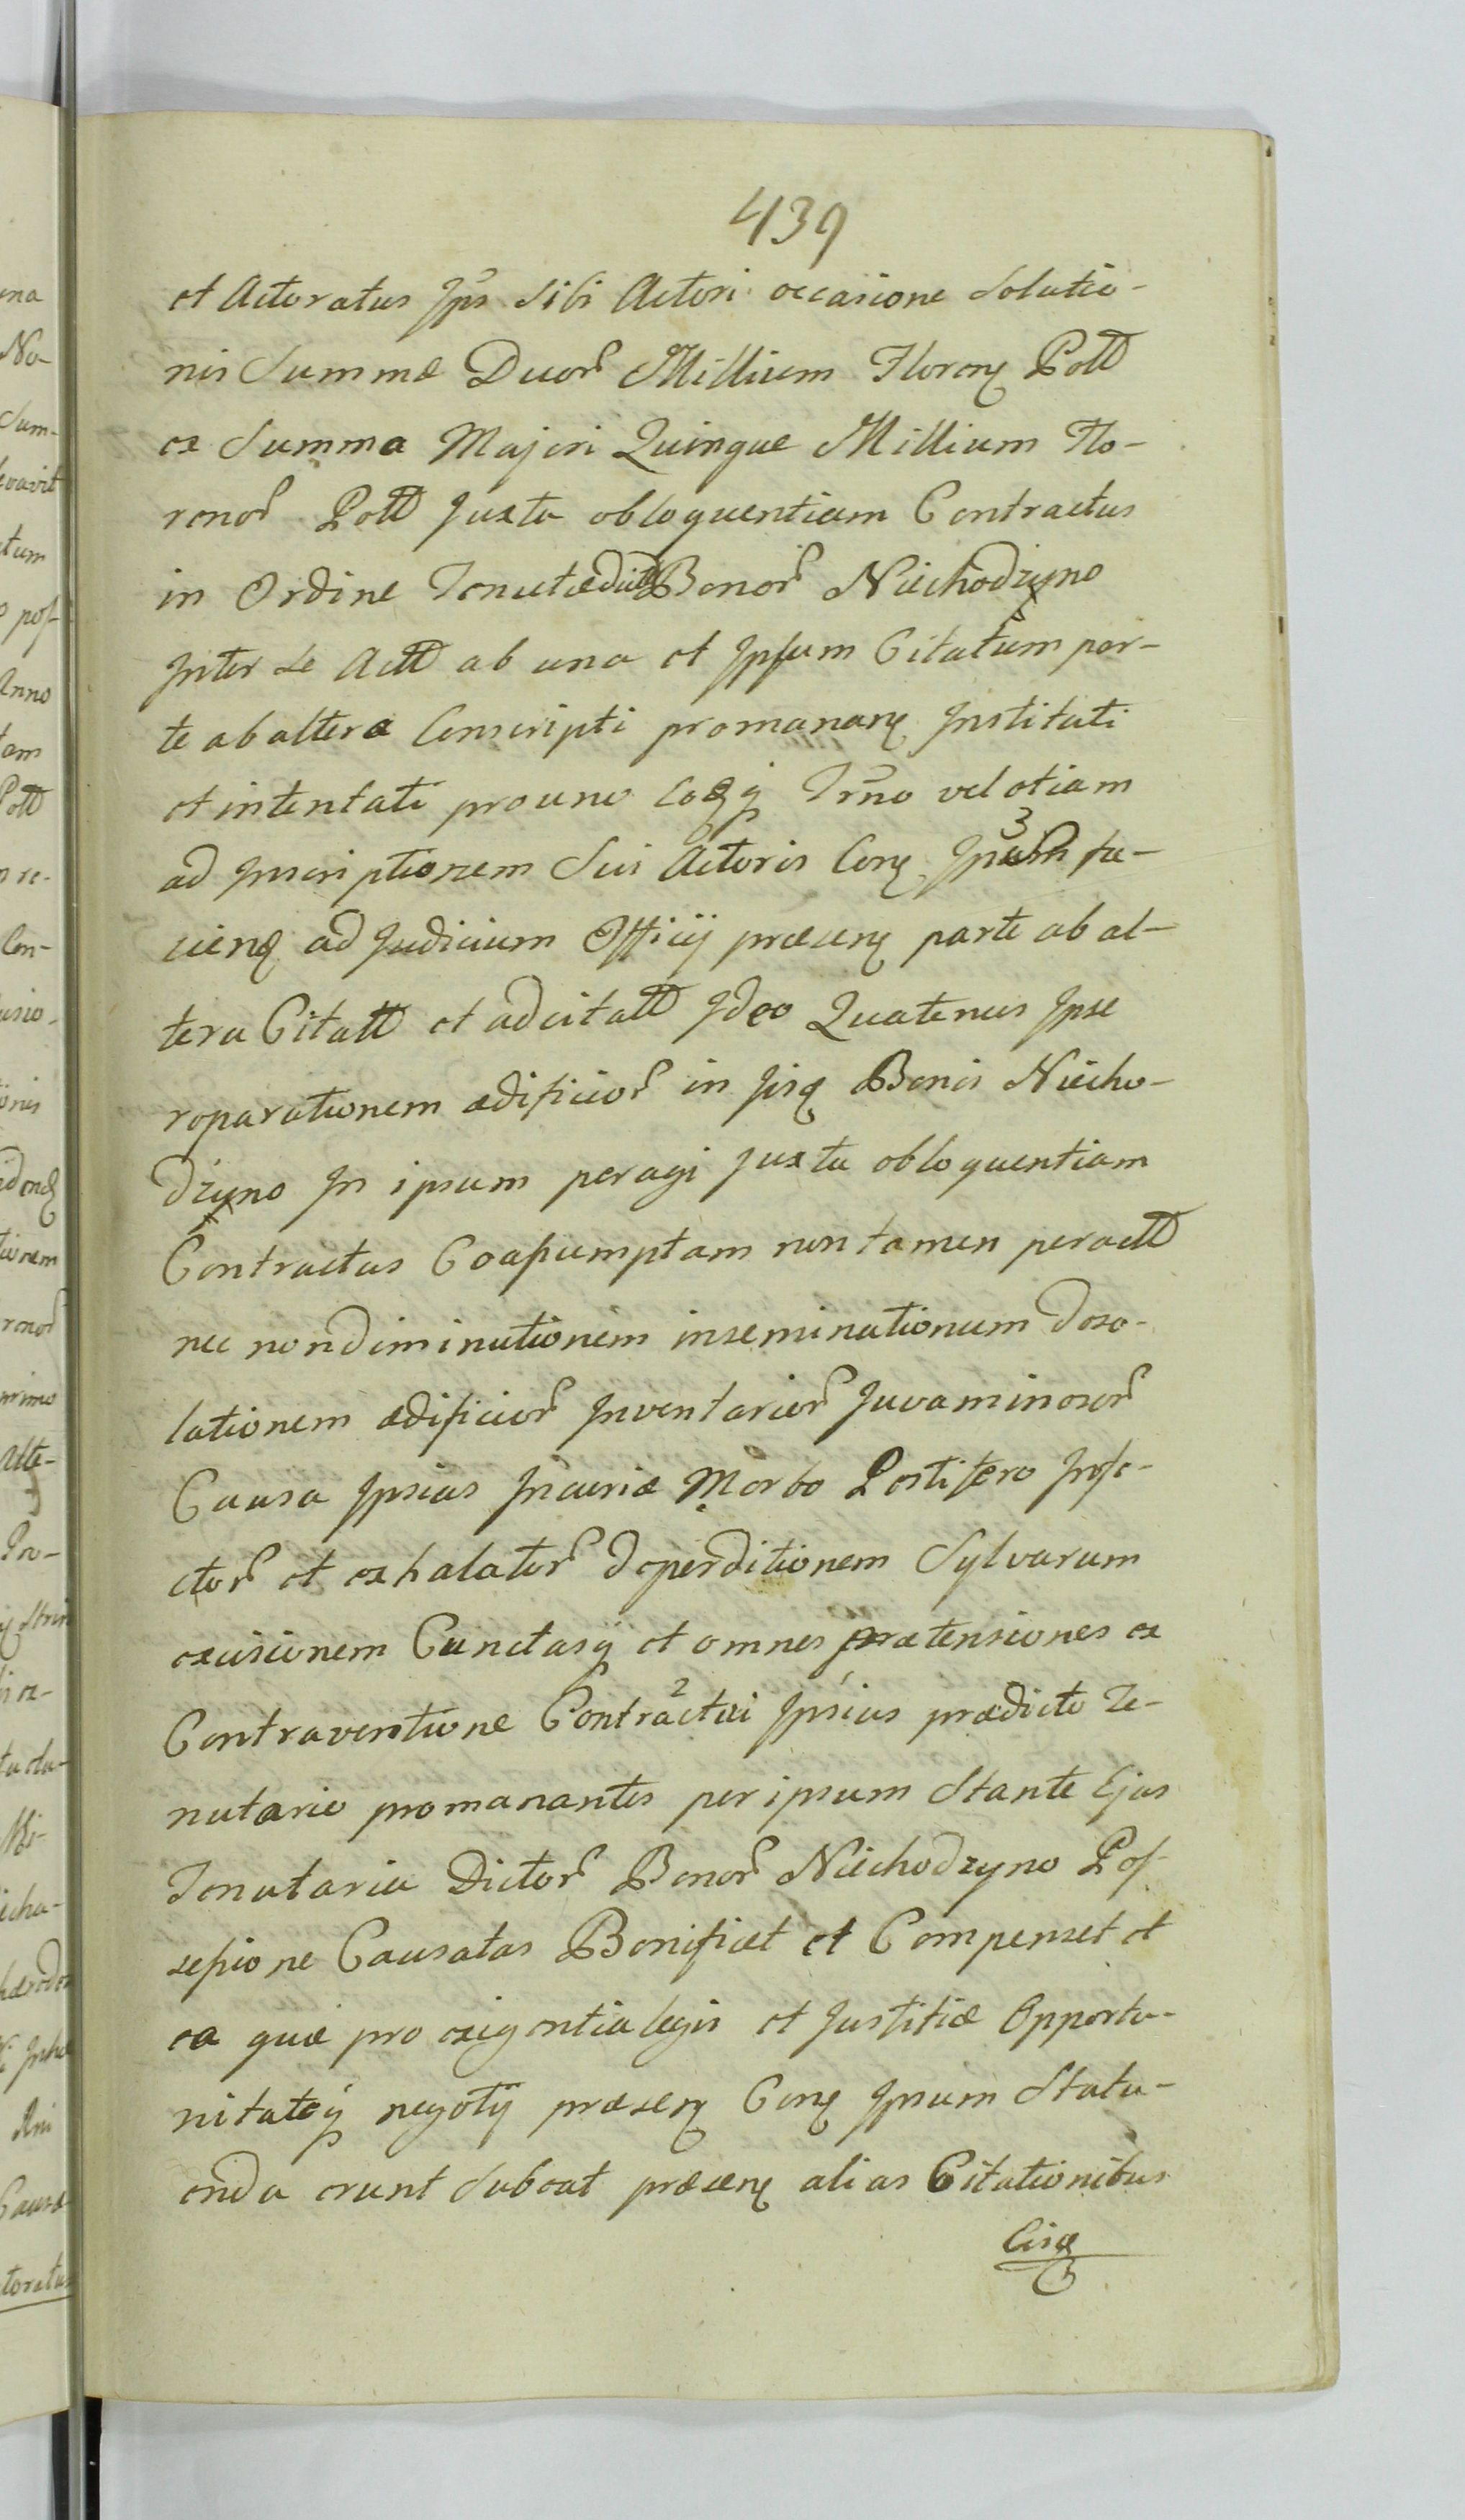 439
et Actoratus Ips sibi Actori occasione Solutio-
nis Summæ Duor Millium Florenq Poltt
ex Summa Majori Quinque Millium Flo-
renor Poltt Juxta obloquentiam Contractus
in Ordine Tenutæ Bonor Niechodzyno
Inter se Actt ab una et Ipsum Citatum par-
te ab altera Conscripti promananq Instituti
et intentati pro uno eoq Trno vel etiam
ad Inscriptionem Sui Actoris Conq 3 fa-
cienq ad Judicium Officij præsenq parte ab al-
tera Citatt et adcitatt Ideo Quatenus Ipse
reparationem ædificior in Iisq Bonis Niecho-
dzyno In ipsum peragi Juxta obloquentiam
Contractus Coassumptam non tamen peractt
nec non diminutionem inseminationum deso-
lationem ædificior Inventarior Juvaminosor
Causa Ipsius Incuriæ Morbo Pestifero Infe-
ctor et exhalator deperditionem Sylvarum
excisionem Cunctasq et omnes prætensiones ex
Contraventione Contra2ctui Ipsius prædicto Te-
nutario promanantes per ipsum Stante Ejus
Tenutaria Dictor Bonor Niechodzyno Pos-
sessione Causatas Bonificet et Compenset et
ea quæ pro exigentia legis et Justitiæ Opportu-
nitateq negotij præsenq Conq Ipsum Statu-
enda erunt Subeat præsenq alias Citationibus